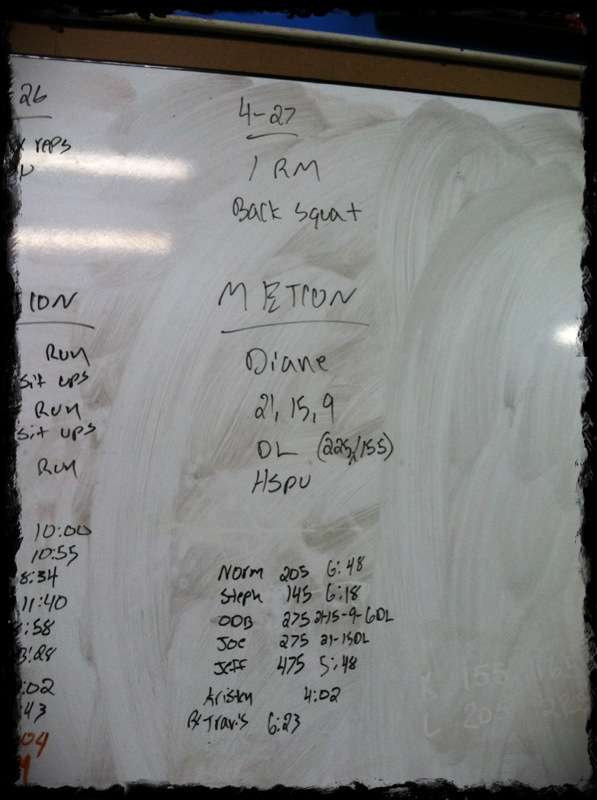 26
reps
Run
sit ups
Run
sit ups
Run
10:00
10:55
8:34
11:40
:58
:28
:02
43
04
4-27
1 RM
Back Squat
METCON
Diane
21, 15, 9
DL (225/155)
HSPU
Norm 205 6:48
Steph 145 6:18
ODB 275 21-15-9-6DL
Joe 275 21-15DL
Jeff 475 5:48
Kristen 4:02
Travis 6:23
K 155
L 205